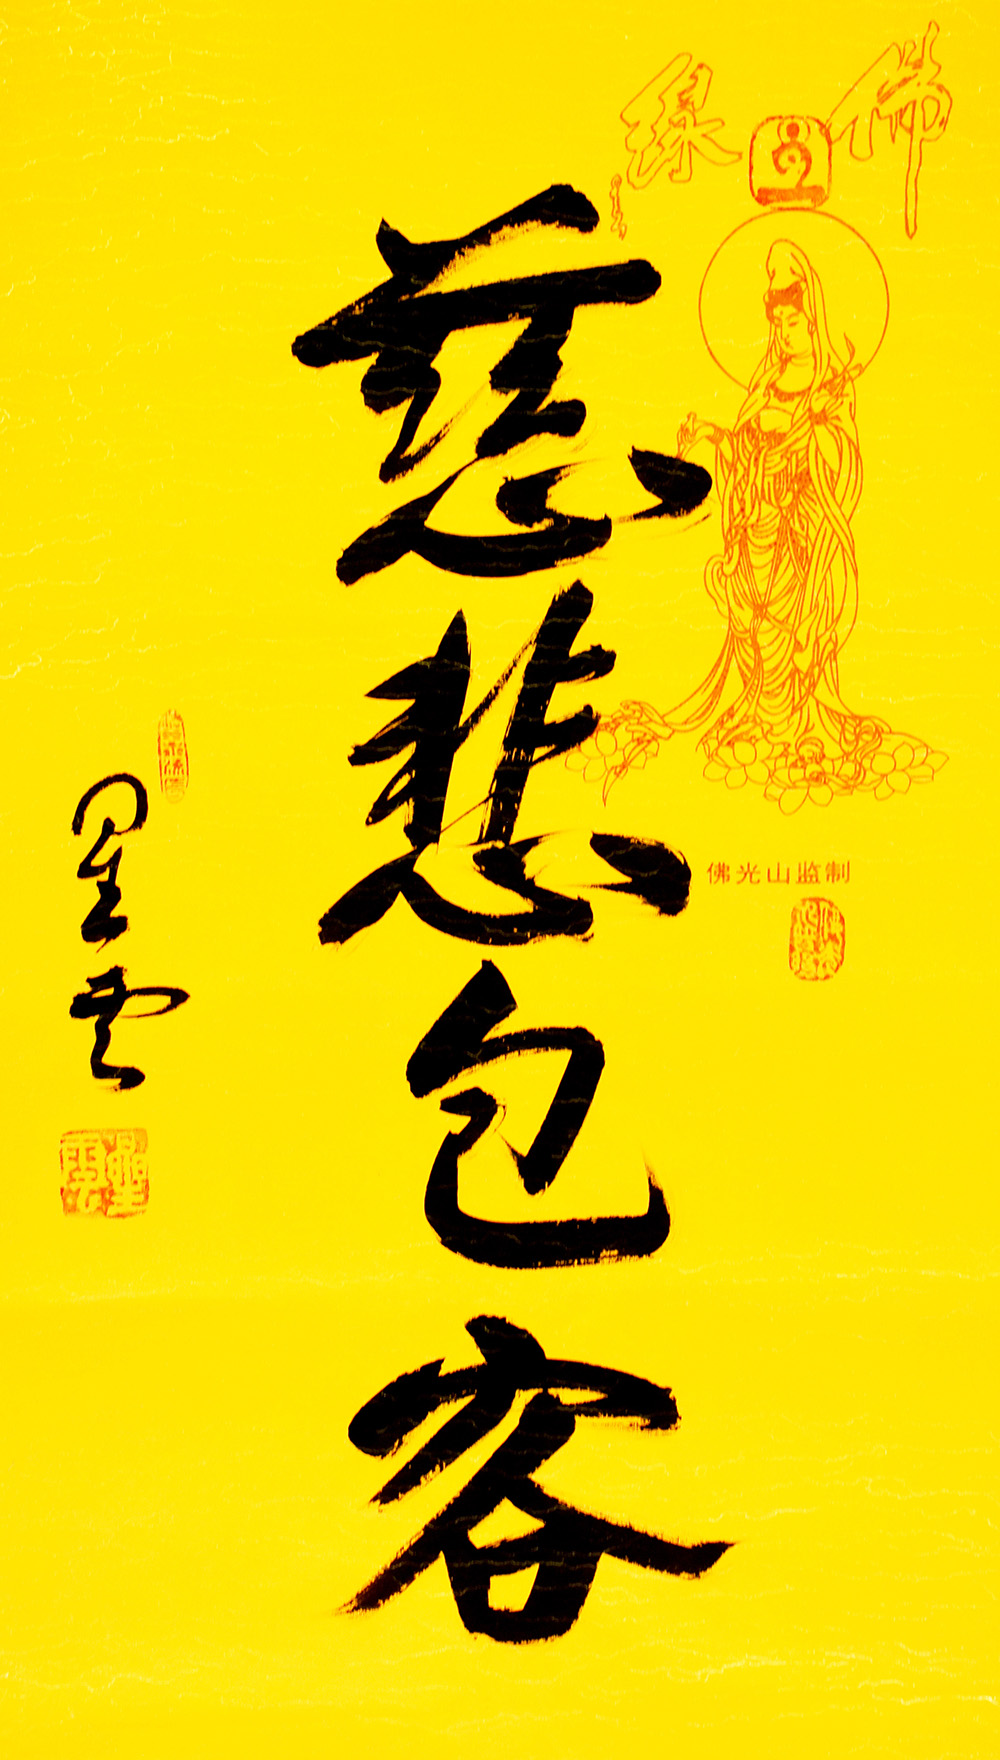 佛緣
慈悲包容
佛光山监制
星雲